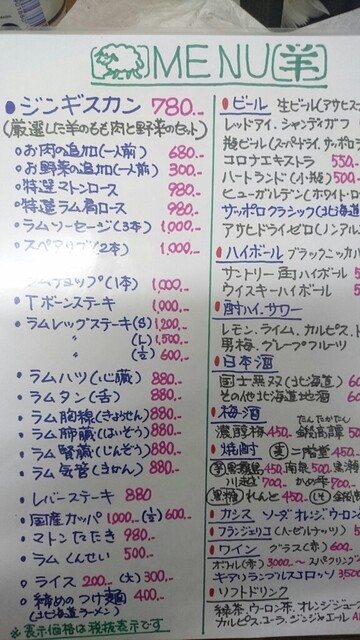 MENU 羊
●ジンギスカン 780.-
(厳選した羊のもも肉と野菜のセット)
○お肉の追加(一人前) 680.-
○お野菜の追加(一人前) 300.-
○特選マトンロース 980.-
○特選ラム肩ロース 980.-
○ラムソーセージ(3本) 1,000.-
○スペアリブ(2本) 1,000.-
ラムチョップ(1本) 1,000.-
・Tボーンステーキ 1,900.-
・ラムレッグステーキ(S) 1,200.-
〃 (L) 1,500.-
〃 (½) 600.-
・ラムハツ(心臓) 880.-
・ラムタン(舌) 880.-
・ラム胸線(きょうせん) 880.-
・ラム肺臓(はいぞう) 880.-
・ラム腎臓(じんぞう) 880.-
・ラム気管(きかん) 880.-
・レバーステーキ 880
・国産ガッパ 1,000.- (½) 600.-
・マトンたたき 980.-
・ラムくんせい 500.-
・ライス 200.- (大) 300.-
・締めのつけ麺 400.-
(北海道ラーメン)
※表示価格は税抜表示です
・ビール 生ビール(アサヒス
レッドアイ、シャンディガフ
瓶ビール(スーパードライ、サッポロ
コロナエキストラ 550.
ハートランド(小瓶) 500.-
ヒューガルデン(ホワイト・ロ
サッポロクラシック(北海道
アサヒドライゼロ(ノンアル
・ハイボール ブラックニッカ
サントリー角ハイボール
ウイスキーハイボール 5
・酎ハイ、サワー
レモン、ライム、カルピス、ト
男梅、グレープフルーツ
・日本酒
国士無双(北海道) 60
その他北海道地酒 60
・梅酒
濃醇梅 450.-
・焼酎 (麦) 二階堂 450.-
(芋) 黒霧島 450.- 南泉 500.-
川越 700.- かめ雫 700.-
(黒糖) れんと 450.-
・カシス ソーダ オレンジ ウーロン
・フランジェリコ(ヘーゼルナッツ) 5
・ワイン グラス(赤) 600.-
ボトル(赤) 3000.-〜 スパークリング
キアリ ランブルスコ ロッソ 3,50
・ソフトドリンク
緑茶、ウーロン茶、オレンジジュー
カルピス、コーラ、ジンジャエール